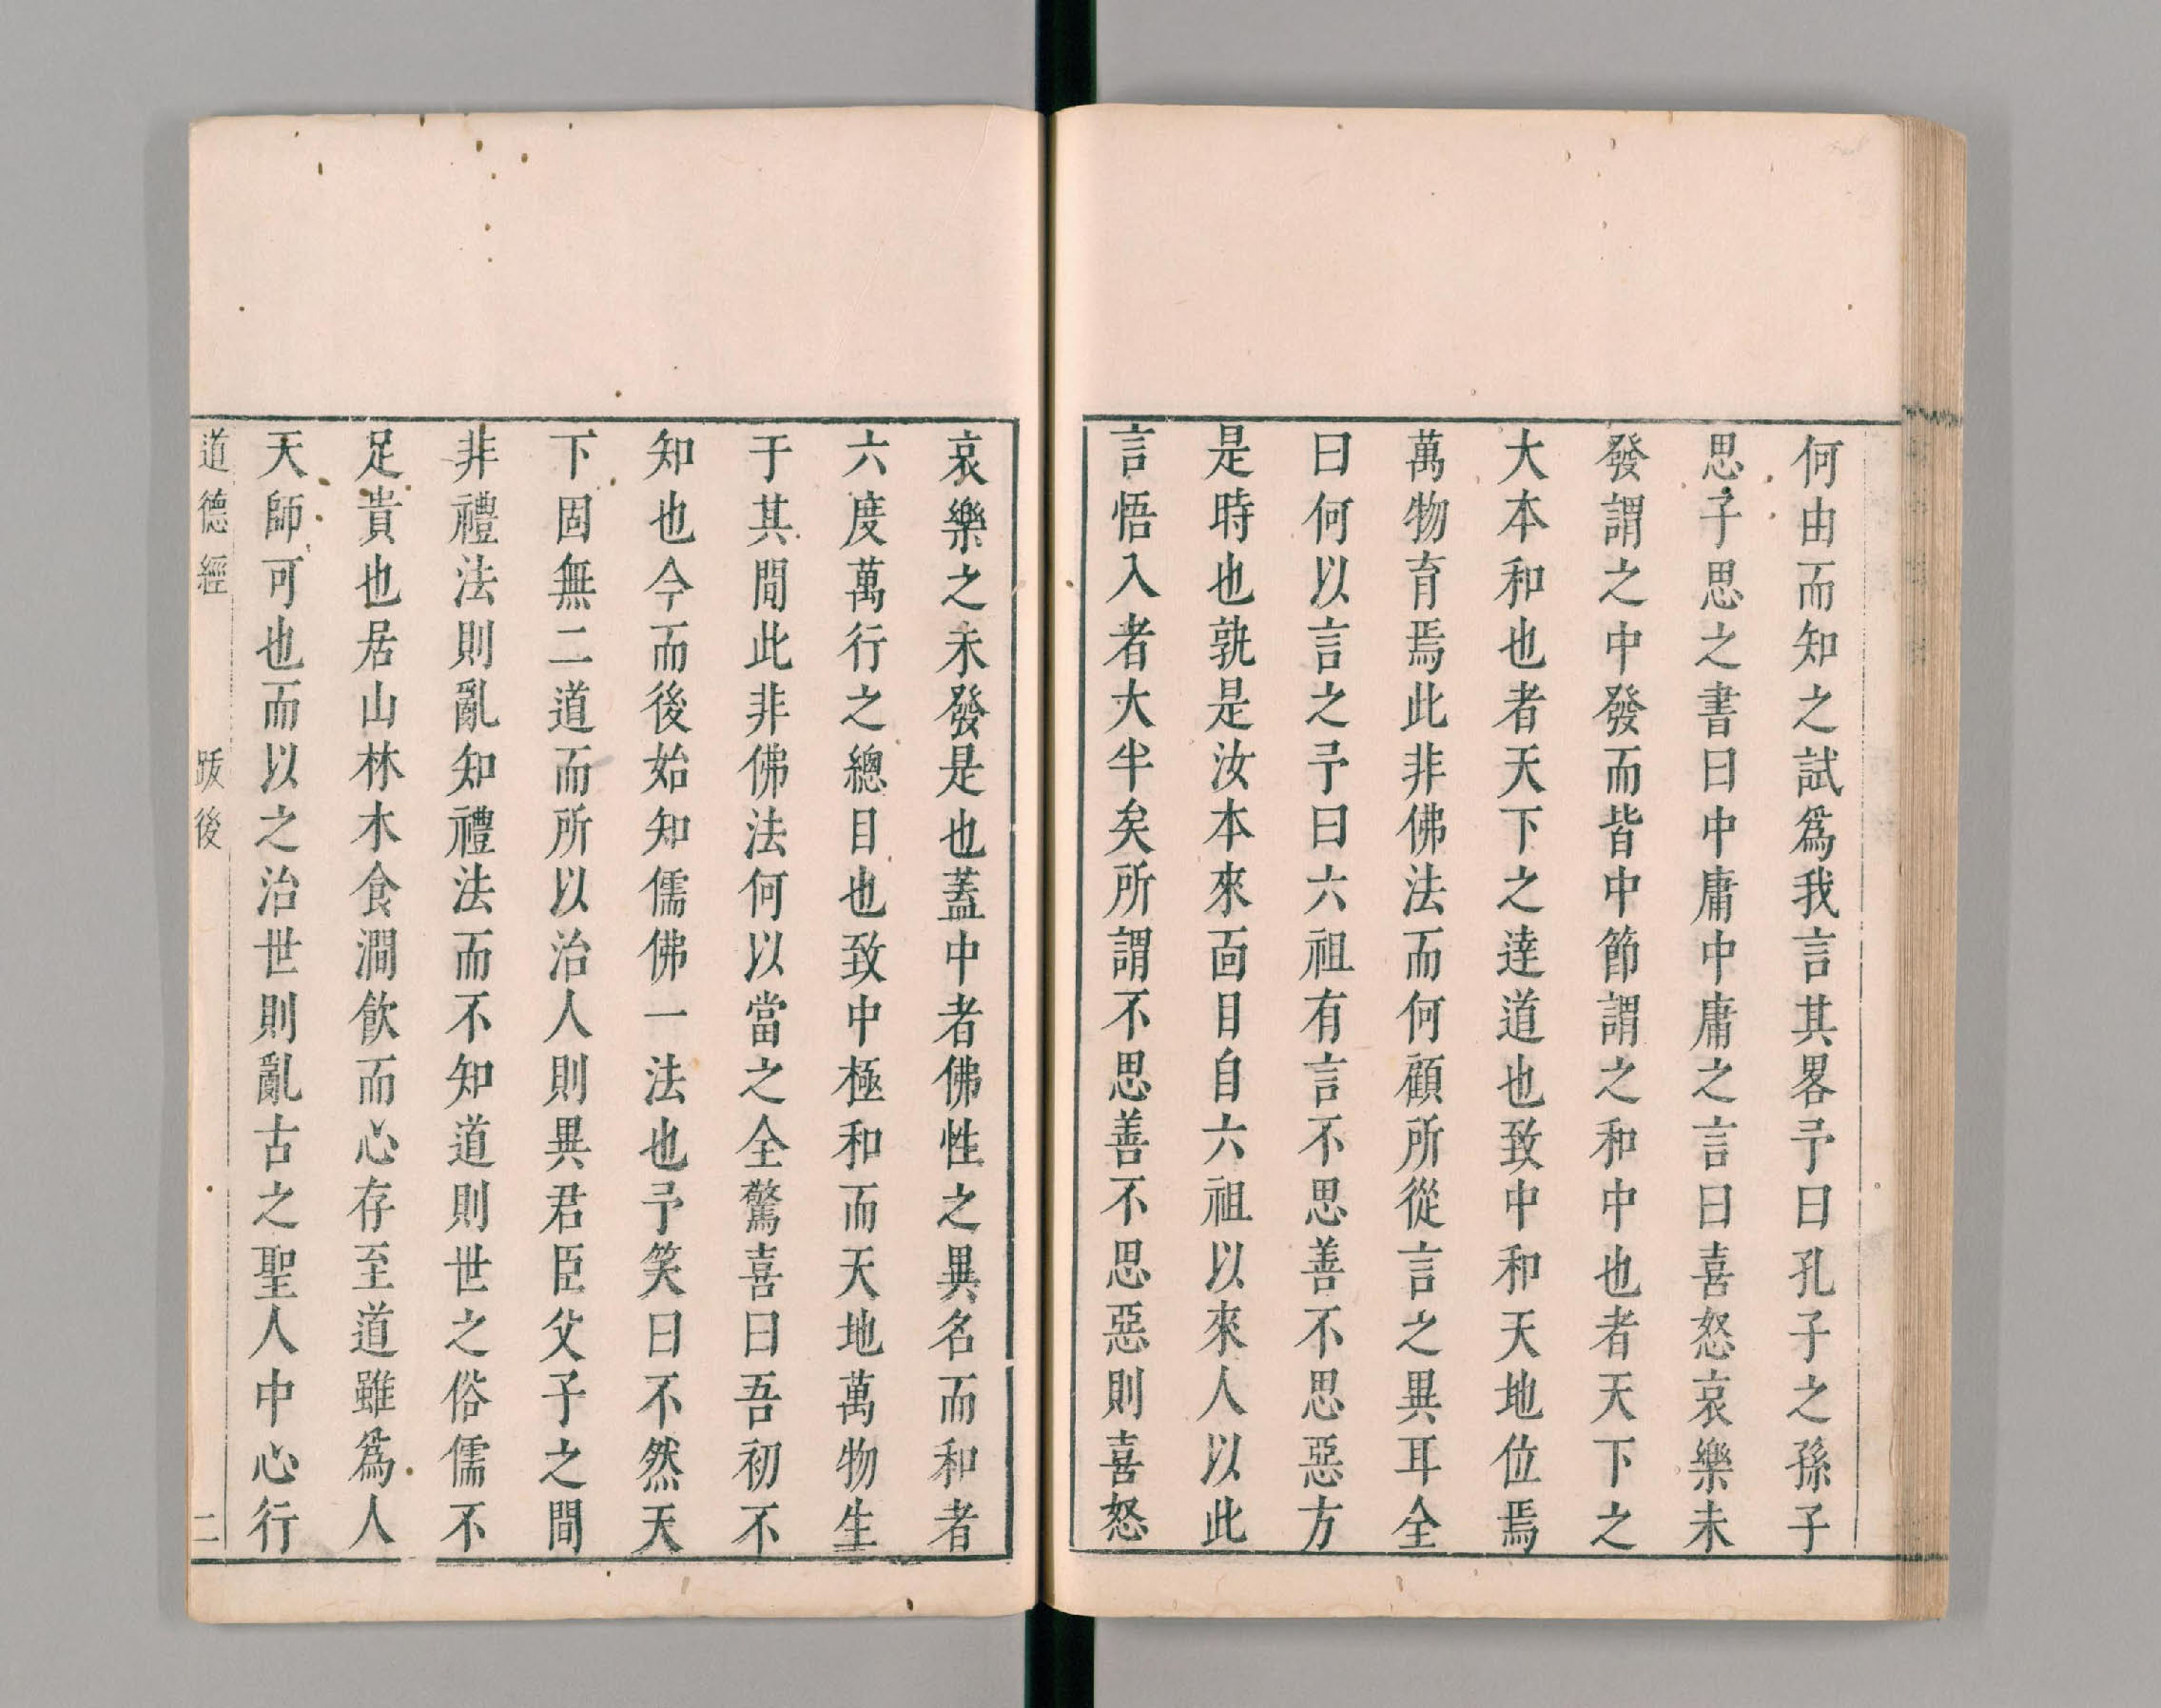 何由而知之試爲我言其畧予曰孔子之孫子
思子思之書曰中庸中庸之言曰喜怒哀樂未
發謂之中發而皆中節謂之和中也者天下之
大本和也者天下之達道也致中和天地位焉
萬物育焉此非佛法而何顧所從言之異耳全
曰何以言之予曰六祖有言不思善不思惡方
是時也孰是汝本來面目自六祖以來人以此
言悟入者大半矣所謂不思善不思惡則喜怒
哀樂之未發是也蓋中者佛性之異名而和者
六度萬行之總目也致中極和而天地萬物生
于其間此非佛法何以當之全驚喜曰吾初不
知也今而後始知儒佛一法也予笑曰不然天
下固無二道而所以治人則異君臣父子之間
非禮法則亂知禮法而不知道則世之俗儒不
足貴也居山林木食澗飲而心存至道雖爲人
天師可也而以之治世則亂古之聖人中心行
道德經 跋後 二